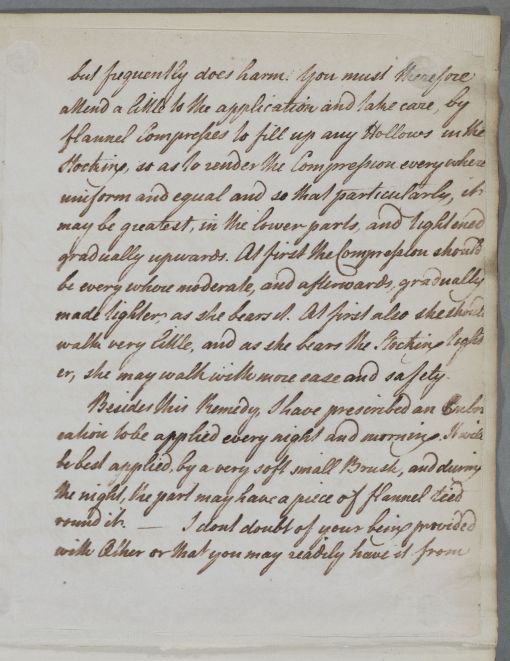 but frequently does harm. You must therefore
attend a little to the application and take care, by
flannel Compresses to fill up any Hollows in the
Stocking, so as to render the Compression every where
uniform and equal and so that particularly, it
may be greatest, in the lower parts, and tightened
gradually upwards. At first the Compression should
be every where moderate, and afterwards, gradually
made tighter, as she bears it. At first also she should
walk very little, and as she bears the Stocking tight
er, she may walk with more ease and safety.
Besides this Remedy, I have prescribed an Embro
cation to be applied every night and morning. It will
be best applied, by a very soft small Brush, and during
the night, the part may have a piece of flannel tied
round it. — I dont doubt of your being provided
with Æther or that you may readily have it from